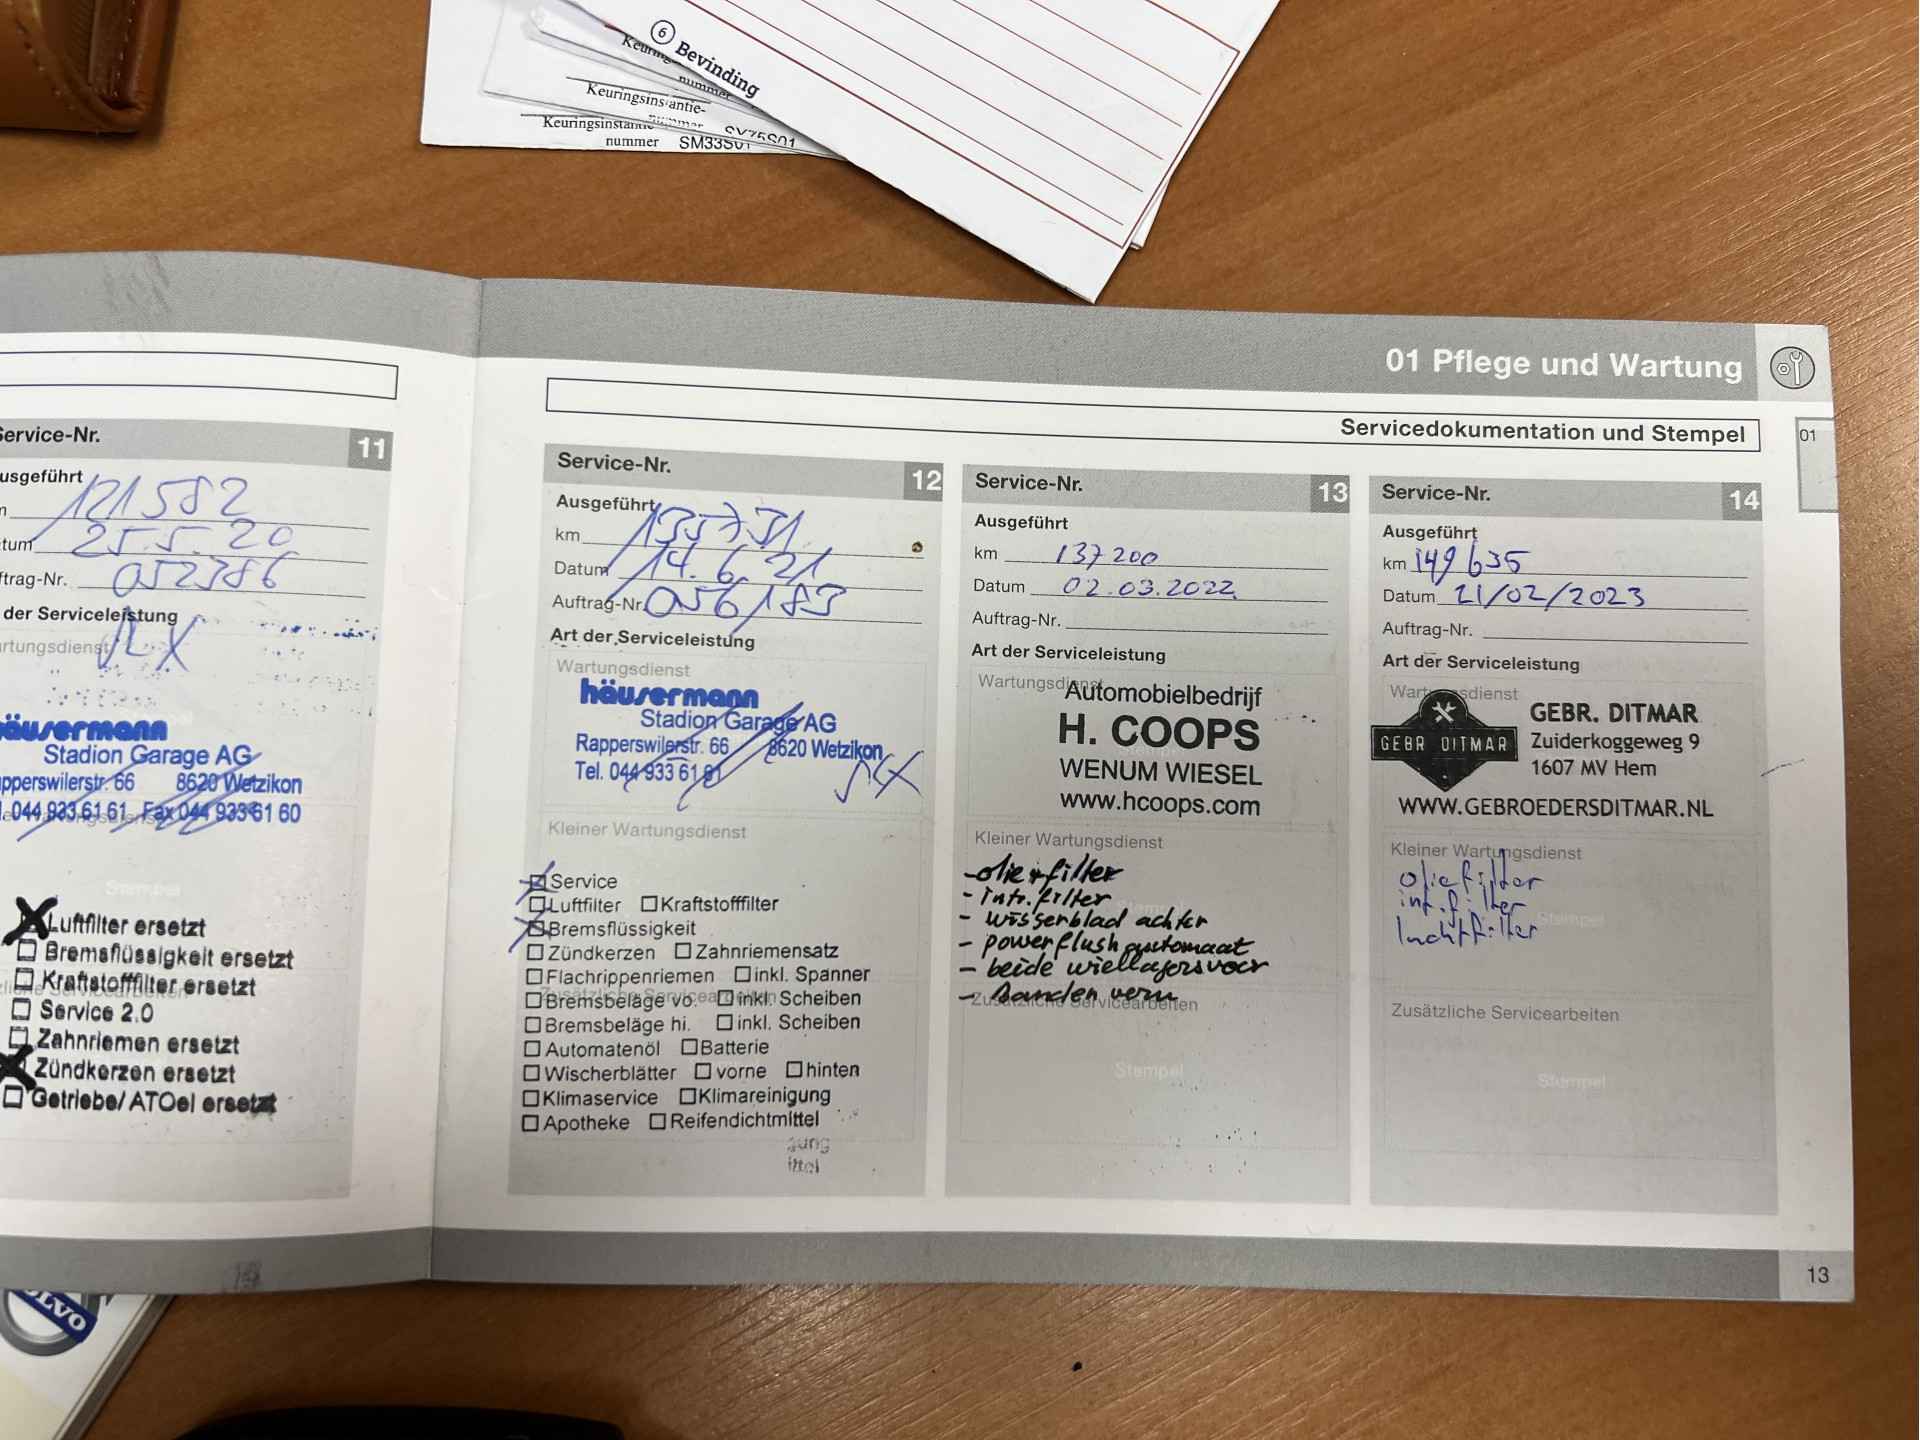 6 Bevinding
Keuringsinstantie-
nummer
Keuringsinstantie-
nummer SM33S01
01 Pflege und Wartung
Servicedokumentation und Stempel
01
Service-Nr. 11
121582
25.5.20
052386
der Serviceleistung
häusermann
Stadion Garage AG
Rapperswilerstr. 66 8620 Wetzikon
044 933 61 61 Fax 044 933 61 60
Stempel
Luftfilter ersetzt
Bremsflüssigkeit ersetzt
Kraftstofffilter ersetzt
Service 2.0
Zahnriemen ersetzt
Zündkerzen ersetzt
Getriebe/ ATOel ersetzt
Service-Nr. 12
Ausgeführt
km 135731
Datum 14.6.21
Auftrag-Nr. 056183
Art der Serviceleistung
Wartungsdienst
häusermann
Stadion Garage AG
Rapperswilerstr. 66 8620 Wetzikon
Tel. 044 933 61 61
Kleiner Wartungsdienst
Service
Luftfilter Kraftstofffilter
Bremsflüssigkeit
Zündkerzen Zahnriemensatz
Flachrippenriemen inkl. Spanner
Zusätzliche Servicearbeiten
Bremsbeläge vo. inkl. Scheiben
Bremsbeläge hi. inkl. Scheiben
Automatenöl Batterie
Wischerblätter vorne hinten
Klimaservice Klimareinigung
Apotheke Reifendichtmittel
gung
ittel
Service-Nr. 13
Ausgeführt
km 137200
Datum 02.03.2022
Auftrag-Nr.
Art der Serviceleistung
Wartungsdienst
Automobielbedrijf
H. COOPS
WENUM WIESEL
www.hcoops.com
Kleiner Wartungsdienst
- olie + filter
- intr. filter
- wisserblad achter
- powerflush automaat
- beide wiellagers voor
- banden vern
Zusätzliche Servicearbeiten
Stempel
Service-Nr. 14
Ausgeführt
km 149635
Datum 21/02/2023
Auftrag-Nr.
Art der Serviceleistung
Wartungsdienst
GEBR DITMAR
GEBR. DITMAR
Zuiderkoggeweg 9
1607 MV Hem
WWW.GEBROEDERSDITMAR.NL
Kleiner Wartungsdienst
oliefilter
int.filter
luchtfilter
Stempel
Zusätzliche Servicearbeiten
Stempel
13
VOLVO